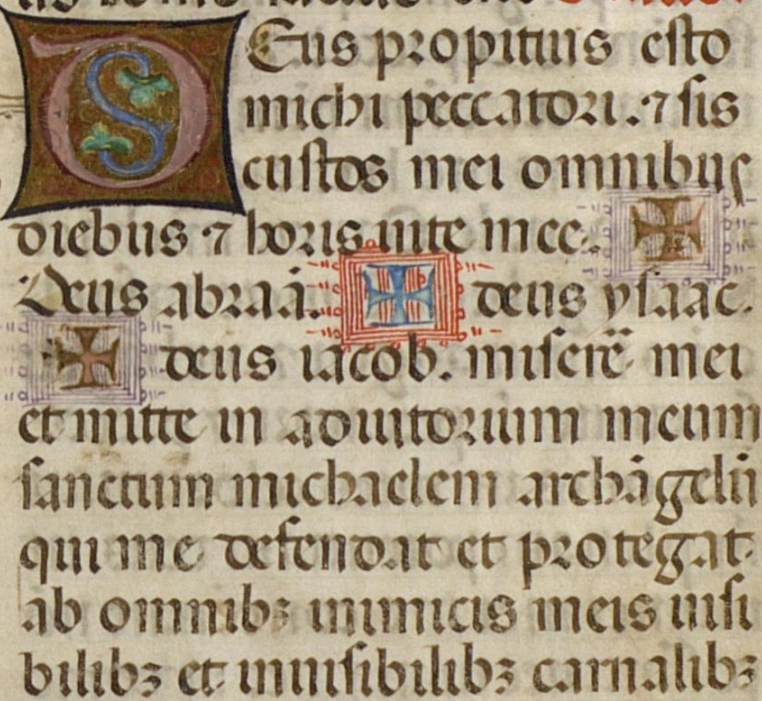 Deus propitius esto
michi peccatori. ⁊ sis
custos mei omnibus
diebus ⁊ horis uite mee. ✠
Deus abraā. ✠ deus ysaac.
✠ deus iacob. miserē mei
et mitte in adiutorium meum
sanctum michaelem archāgelū
qui me defendat et protegat
ab omnibꝫ inimicis meis uisi
bilibꝫ et inuisibilibꝫ carnalibꝫ